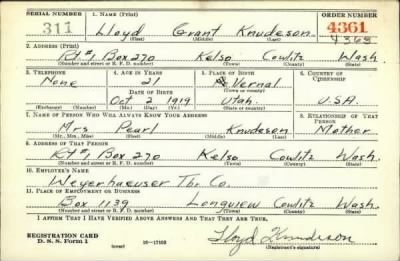 SERIAL NUMBER 1. NAME (Print) ORDER NUMBER
311 Lloyd Grant Knudeson 4361
(First) (Middle) (Last) 4363
2. ADDRESS (Print)
Rt #1 Box 270 Kelso Cowlitz Wash
(Number and street or R. F. D. number) (Town) (County) (State)
3. TELEPHONE 4. AGE IN YEARS 5. PLACE OF BIRTH 6. COUNTRY OF CITIZENSHIP
None 21 Vernal
DATE OF BIRTH (Town or county)
Oct 2 1919 Utah. U.S.A.
(Exchange) (Number) (Mo.) (Day) (Yr.) (State or country)
7. NAME OF PERSON WHO WILL ALWAYS KNOW YOUR ADDRESS 8. RELATIONSHIP OF THAT PERSON
Mrs Pearl Knudeson Mother
(Mr., Mrs., Miss) (First) (Middle) (Last)
9. ADDRESS OF THAT PERSON
Rt #1 Box 270 Kelso Cowlitz Wash.
(Number and street or R. F. D. number) (Town) (County) (State)
10. EMPLOYER'S NAME
Weyerhaeuser Tbr. Co.
11. PLACE OF EMPLOYMENT OR BUSINESS
Box 1139 Longview Cowlitz Wash.
(Number and street or R. F. D. number) (Town) (County) (State)
I AFFIRM THAT I HAVE VERIFIED ABOVE ANSWERS AND THAT THEY ARE TRUE.
REGISTRATION CARD
D. S. S. Form 1 (over) 16—17105 Lloyd Knudeson
(Registrant's signature)